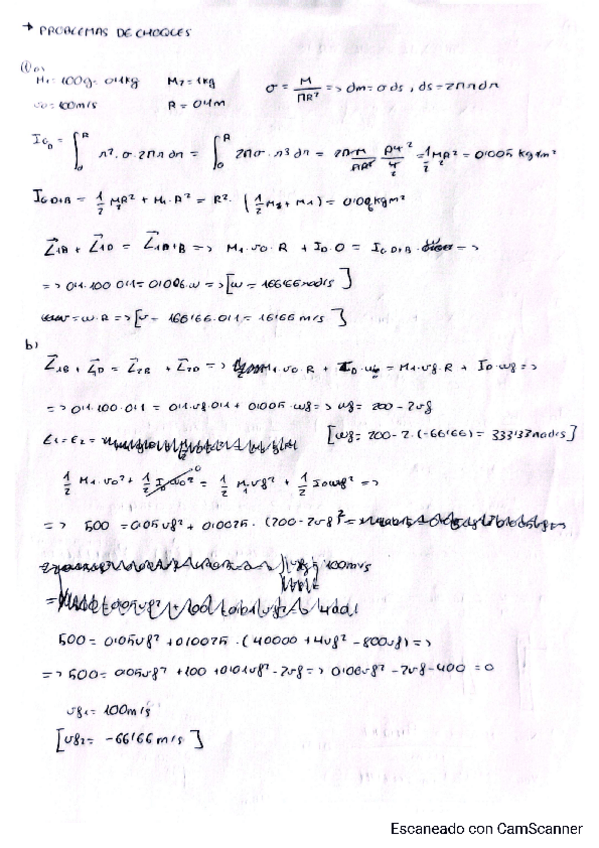 → PROBLEMAS DE CHOQUES
① a)
M₁ = 100g = 0'1kg M₂ = 1kg σ = M / πR² => dm = σ ds , ds = 2πr dr
v₀ = 100m/s R = 0'1m
I_CD = ∫₀ᴿ r² · σ · 2πr dr = ∫₀ᴿ 2πσ · r³ dr = 2π M/πR² R⁴/4 = 1/2 MR² = 0'005 kg·m²
I_CD+B = 1/2 M₂R² + M₁·R² = R² · (1/2 M₂ + M₁) = 0'006 kgm²
L₁B + L₁D = L₁D+B => M₁·v₀·R + I_D·0 = I_CD+B · =>
=> 0'1·100·0'1 = 0'006·ω => [ω = 166'66 rad/s]
v = ω·R => [v = 166'66·0'1 = 16'66 m/s]
b)
L₁B + L₁D = L₂B + L₂D => M₁·v₀·R + I_D·ω₀ = M₁·vf·R + I_D·ωf =>
=> 0'1·100·0'1 = 0'1·vf·0'1 + 0'005·ωf => ωf = 200 - 2vf
E₁ = E₂ = [ωf = 200 - 2·(-66'66) = 333'33 rad/s]
1/2 M₁·v₀² + 1/2 I_Dω₀² = 1/2 M₁vf² + 1/2 I_Dωf² =>
=> 500 = 0'05vf² + 0'0025 · (200 - 2vf)²
100m/s
500 = 0'05vf² + 0'0025 · (40000 + 4vf² - 800vf) =>
=> 500 = 0'05vf² + 100 + 0'01vf² - 2vf => 0'06vf² - 2vf - 400 = 0
vf₁ = 100m/s
[vf₂ = -66'66 m/s]
Escaneado con CamScanner